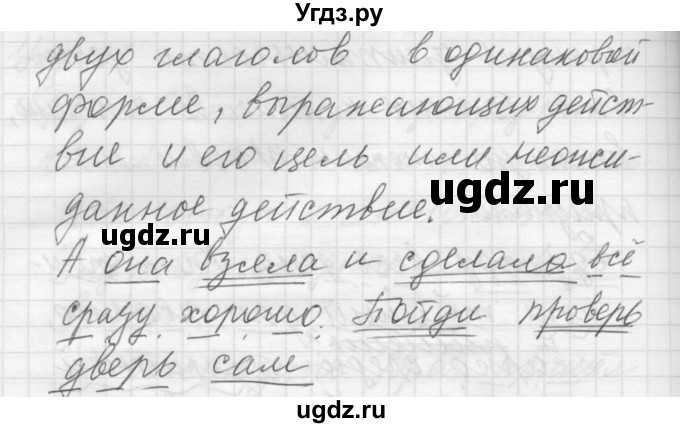 Угдз.ру
двух глаголов в одинаковой
форме, выражающих дейст-
вие и его цель или неожи-
ugdz.ru
данное действие.
ugdz.ru
А она взяла и сделала всё
сразу хорошо. Пойди проверь
дверь сам
ugdz.ru
ugdz.ru